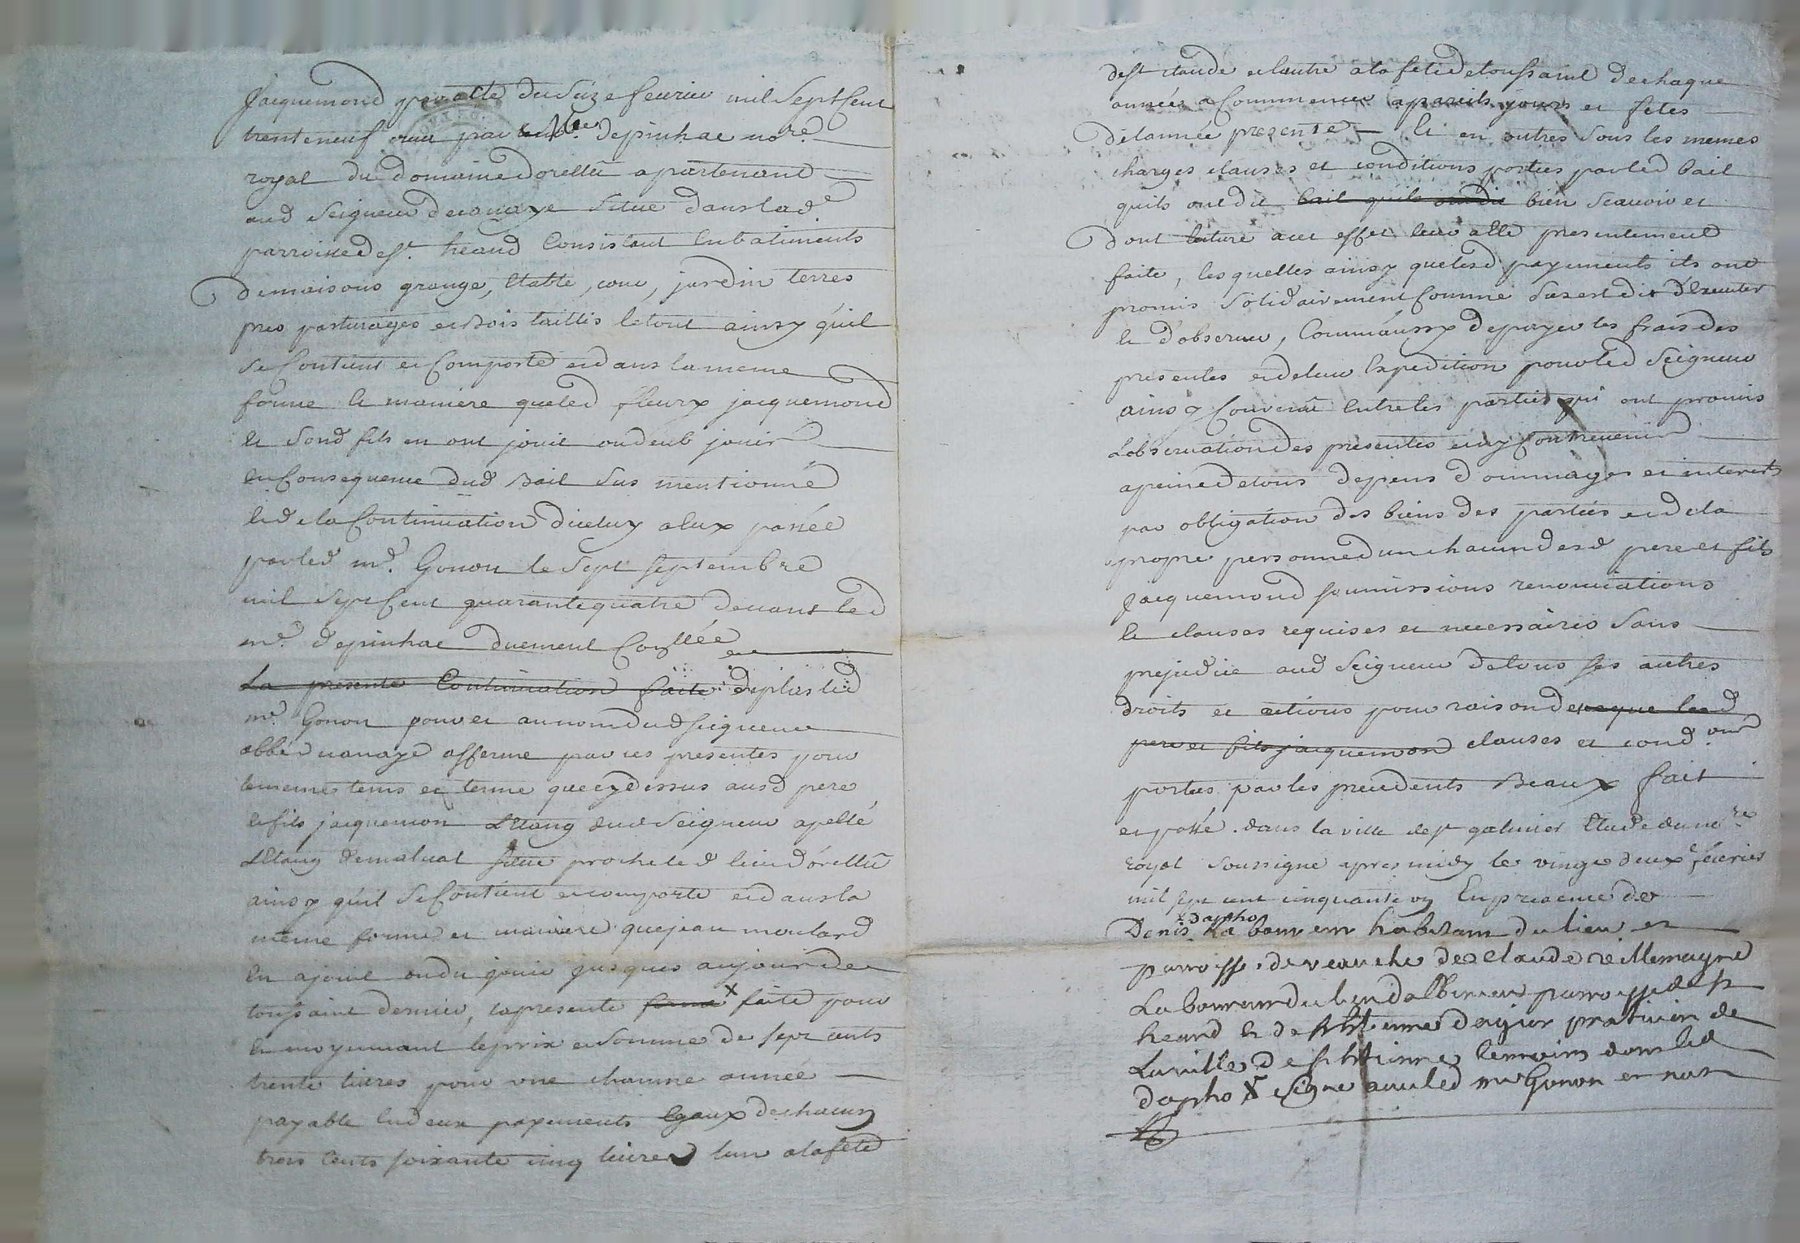 Jacquemond par acte du seize fevrier mil sept cent
trente neuf recu par depinhac nore
royal du domaine dorellu apartenant
aud Seigneur situé dans lad.
parroisse de st. heand Consistant en batiments
de maisons grange, Etable, cour, jardin terres
pres pasturages et bois taillis le tout ainsy quil
se Contient et Comporte et dans la meme
forme et maniere que led fleury jacquemond
et sond fils en ont joui ou deub jouir
en Consequence dud Bail sus mentionné
et de la Continuation diceluy a eux passée
par led mr. Gonon le sept septembre
mil sept Cent quarante quatre devant led
me. depinhac duement Conllée
La presente Continuation faite de plus led
mr. Gonon pour et au nom dud seigneur
abbé afferme par ces presentes pour
le meme tems et terme que cy dessus ausd pere
et fils jacquemon L'Etang dud Seigneur apellé
L'Etang de malval situé proche led lieu d'orellu
ainsy quil se Contient et comporte et dans la
meme forme et maniere que jean moulard
en a joui ou du jouir jusques au jour de
toussaint dernier, la presente ferme x faite pour
et moyennant le prix et somme de sept cents
trente livres pour une chacune année
payable en deux payements Egaux de chacun
trois Cents soixante cinq livres lun a la fete
de st claude et lautre a la fete de toussaint de chaque
année a Commencer a pareils jours et fetes
de lannée presente — Et en outres sous les memes
charges clauses et conditions portées par led bail
quils ont dit bail quils ont dit bien scauoir et
dont lecture a cet effet leur a été presentement
faite, lesquelles ainsy que lesd payements ils ont
promis solidairement Comme dus est dit d'Executer
et d'observer, Comm'aussy de payer les frais des
presentes et de leur Expedition pour led Seigneur
ainsy Convenu Entre les parties qui ont promis
Lobservation des presentes et ny Contrevenir
a peine de tous depens dommages et interest
par obligation des biens des parties et de la
propre personne d'un chacun desd pere et fils
Jacquemond soumissions renonciations
et clauses requises et necessaires sans
prejudice aud Seigneur de tous ses autres
droits et actions pour raison de ce que lesd
pere et fils jacquemond clauses et condons
portées par les precedents Beaux fait
et passé dans la ville de st galmier Etude du nore
royal soussigné apres midy le vingt deux feuvrier
mil sept cent cinquante En presence de
Denis dapho La boureur habitant du lieu et
parroisse de veauche de claude veillemagne
La boureur du lieu d'albineux parroisse de st
heand et de st Etienne praticien de
La ville de st Etienne temoins dont led
dapho X signé avec led mr Gonon et non